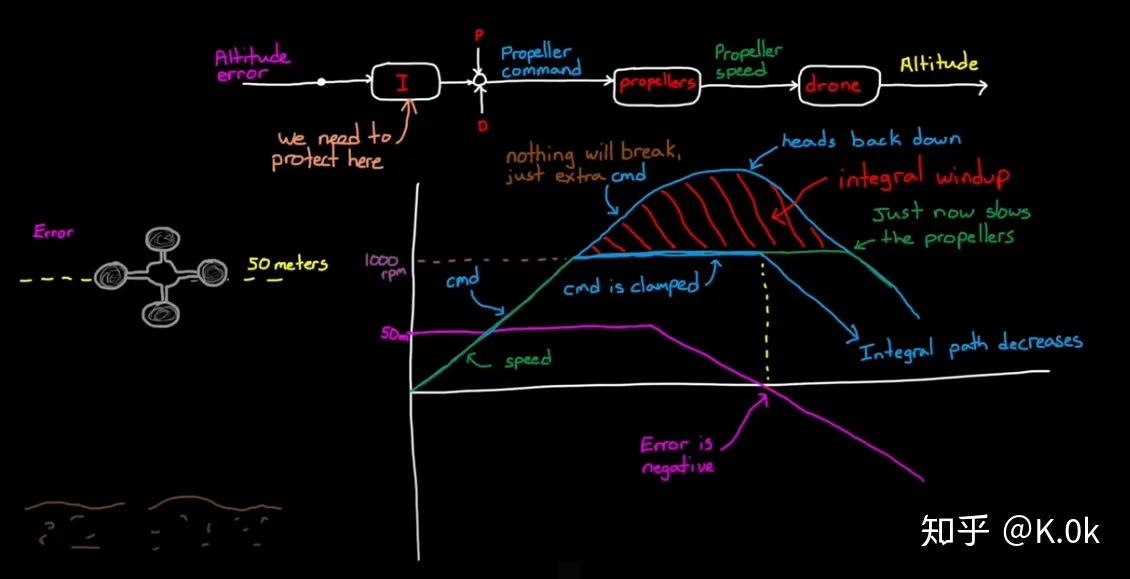 Altitude
error
I
P
D
Propeller
command
propellers
Propeller
speed
drone
Altitude
we need to
protect here
nothing will break,
just extra cmd
heads back down
integral windup
Just now slows
the propellers
Error
50 meters
1000
rpm
cmd
cmd is clamped
50m
speed
Integral path decreases
Error is
negative
知乎 @K.0k